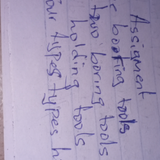 Assignment
boating tools
two boring tools
holding tools
types types h